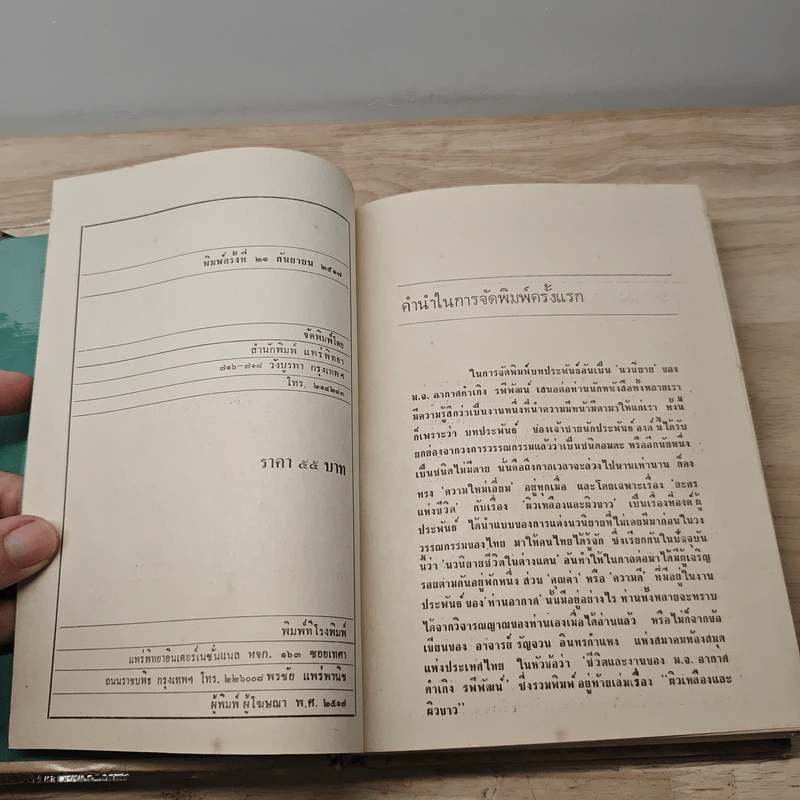 พิมพ์ครั้งที่ ๒๑ กันยายน ๒๕๑๗
จัดพิมพ์โดย
สำนักพิมพ์ แพร่พิทยา
๗๑๖-๗๑๘ วังบูรพา กรุงเทพฯ
โทร. ๒๑๔๒๘๓
ราคา ๕๕ บาท
พิมพ์ที่โรงพิมพ์
แพร่พิทยาอินเตอร์เนชั่นแนล หจก. ๑๖๓ ซอยเทศา
ถนนราชบพิธ กรุงเทพฯ โทร. ๒๒๖๐๐๘ พรชัย แพร่พานิช
ผู้พิมพ์ ผู้โฆษณา พ.ศ. ๒๕๑๗
คำนำในการจัดพิมพ์ครั้งแรก
ในการจัดพิมพ์บทประพันธ์อันเป็น 'นวนิยาย' ของ
ม.จ. อากาศดำเกิง รพีพัฒน์ เสนอต่อท่านนักหนังสือทั้งหลายเรา
มีความรู้สึกว่าเป็นงานพึ่งที่นำความมีหน้ามีตามาให้แก่เรา ทั้งนี้
ก็เพราะว่า บทประพันธ์ ของเจ้าชายนักประพันธ์ องค์นี้ ได้รับ
ยกย่องจากวงการวรรณกรรมแล้วว่าเป็นชนิดอมตะ หรืออีกนัยหนึ่ง
เป็นชนิดไม่มีตาย นั่นคือถึงกาลเวลาจะล่วงไปนานเท่านาน ก็คง
ทรง 'ความใหม่เอี่ยม' อยู่ทุกเมื่อ และโดยเฉพาะเรื่อง 'ละคร
แห่งชีวิต' กับเรื่อง 'ผิวเหลืองและผิวขาว' เป็นเรื่องที่องค์ ผู้
ประพันธ์ ได้นำแบบของการแต่งนวนิยายที่ไม่เคยมีมาก่อนในวง
วรรณกรรมของไทย มาให้คนไทยได้รู้จัก ซึ่งเรียกกันในปัจจุบัน
นี้ว่า 'นวนิยายชีวิตในต่างแดน' อันทำให้ในกาลต่อมาได้มีผู้เจริญ
รอยตามกันอยู่พักหนึ่ง ส่วน 'คุณค่า' หรือ 'ความดี' ที่มีอยู่ในงาน
ประพันธ์ ของ 'ท่านอากาศ' นั้นมีอยู่อย่างไร ท่านทั้งหลายจะทราบ
ได้จากวิจารณญาณของท่านเองเมื่อได้อ่านแล้ว หรือไม่ก็จากข้อ
เขียนของ อาจารย์ รัญจวน อินทรกำแหง แห่งสมาคมห้องสมุด
แห่งประเทศไทย ในหัวข้อว่า 'ชีวิตและงานของ ม.จ. อากาศ
ดำเกิง รพีพัฒน์' ซึ่งรวมพิมพ์ อยู่ท้ายเล่มเรื่อง "ผิวเหลืองและ
ผิวขาว"